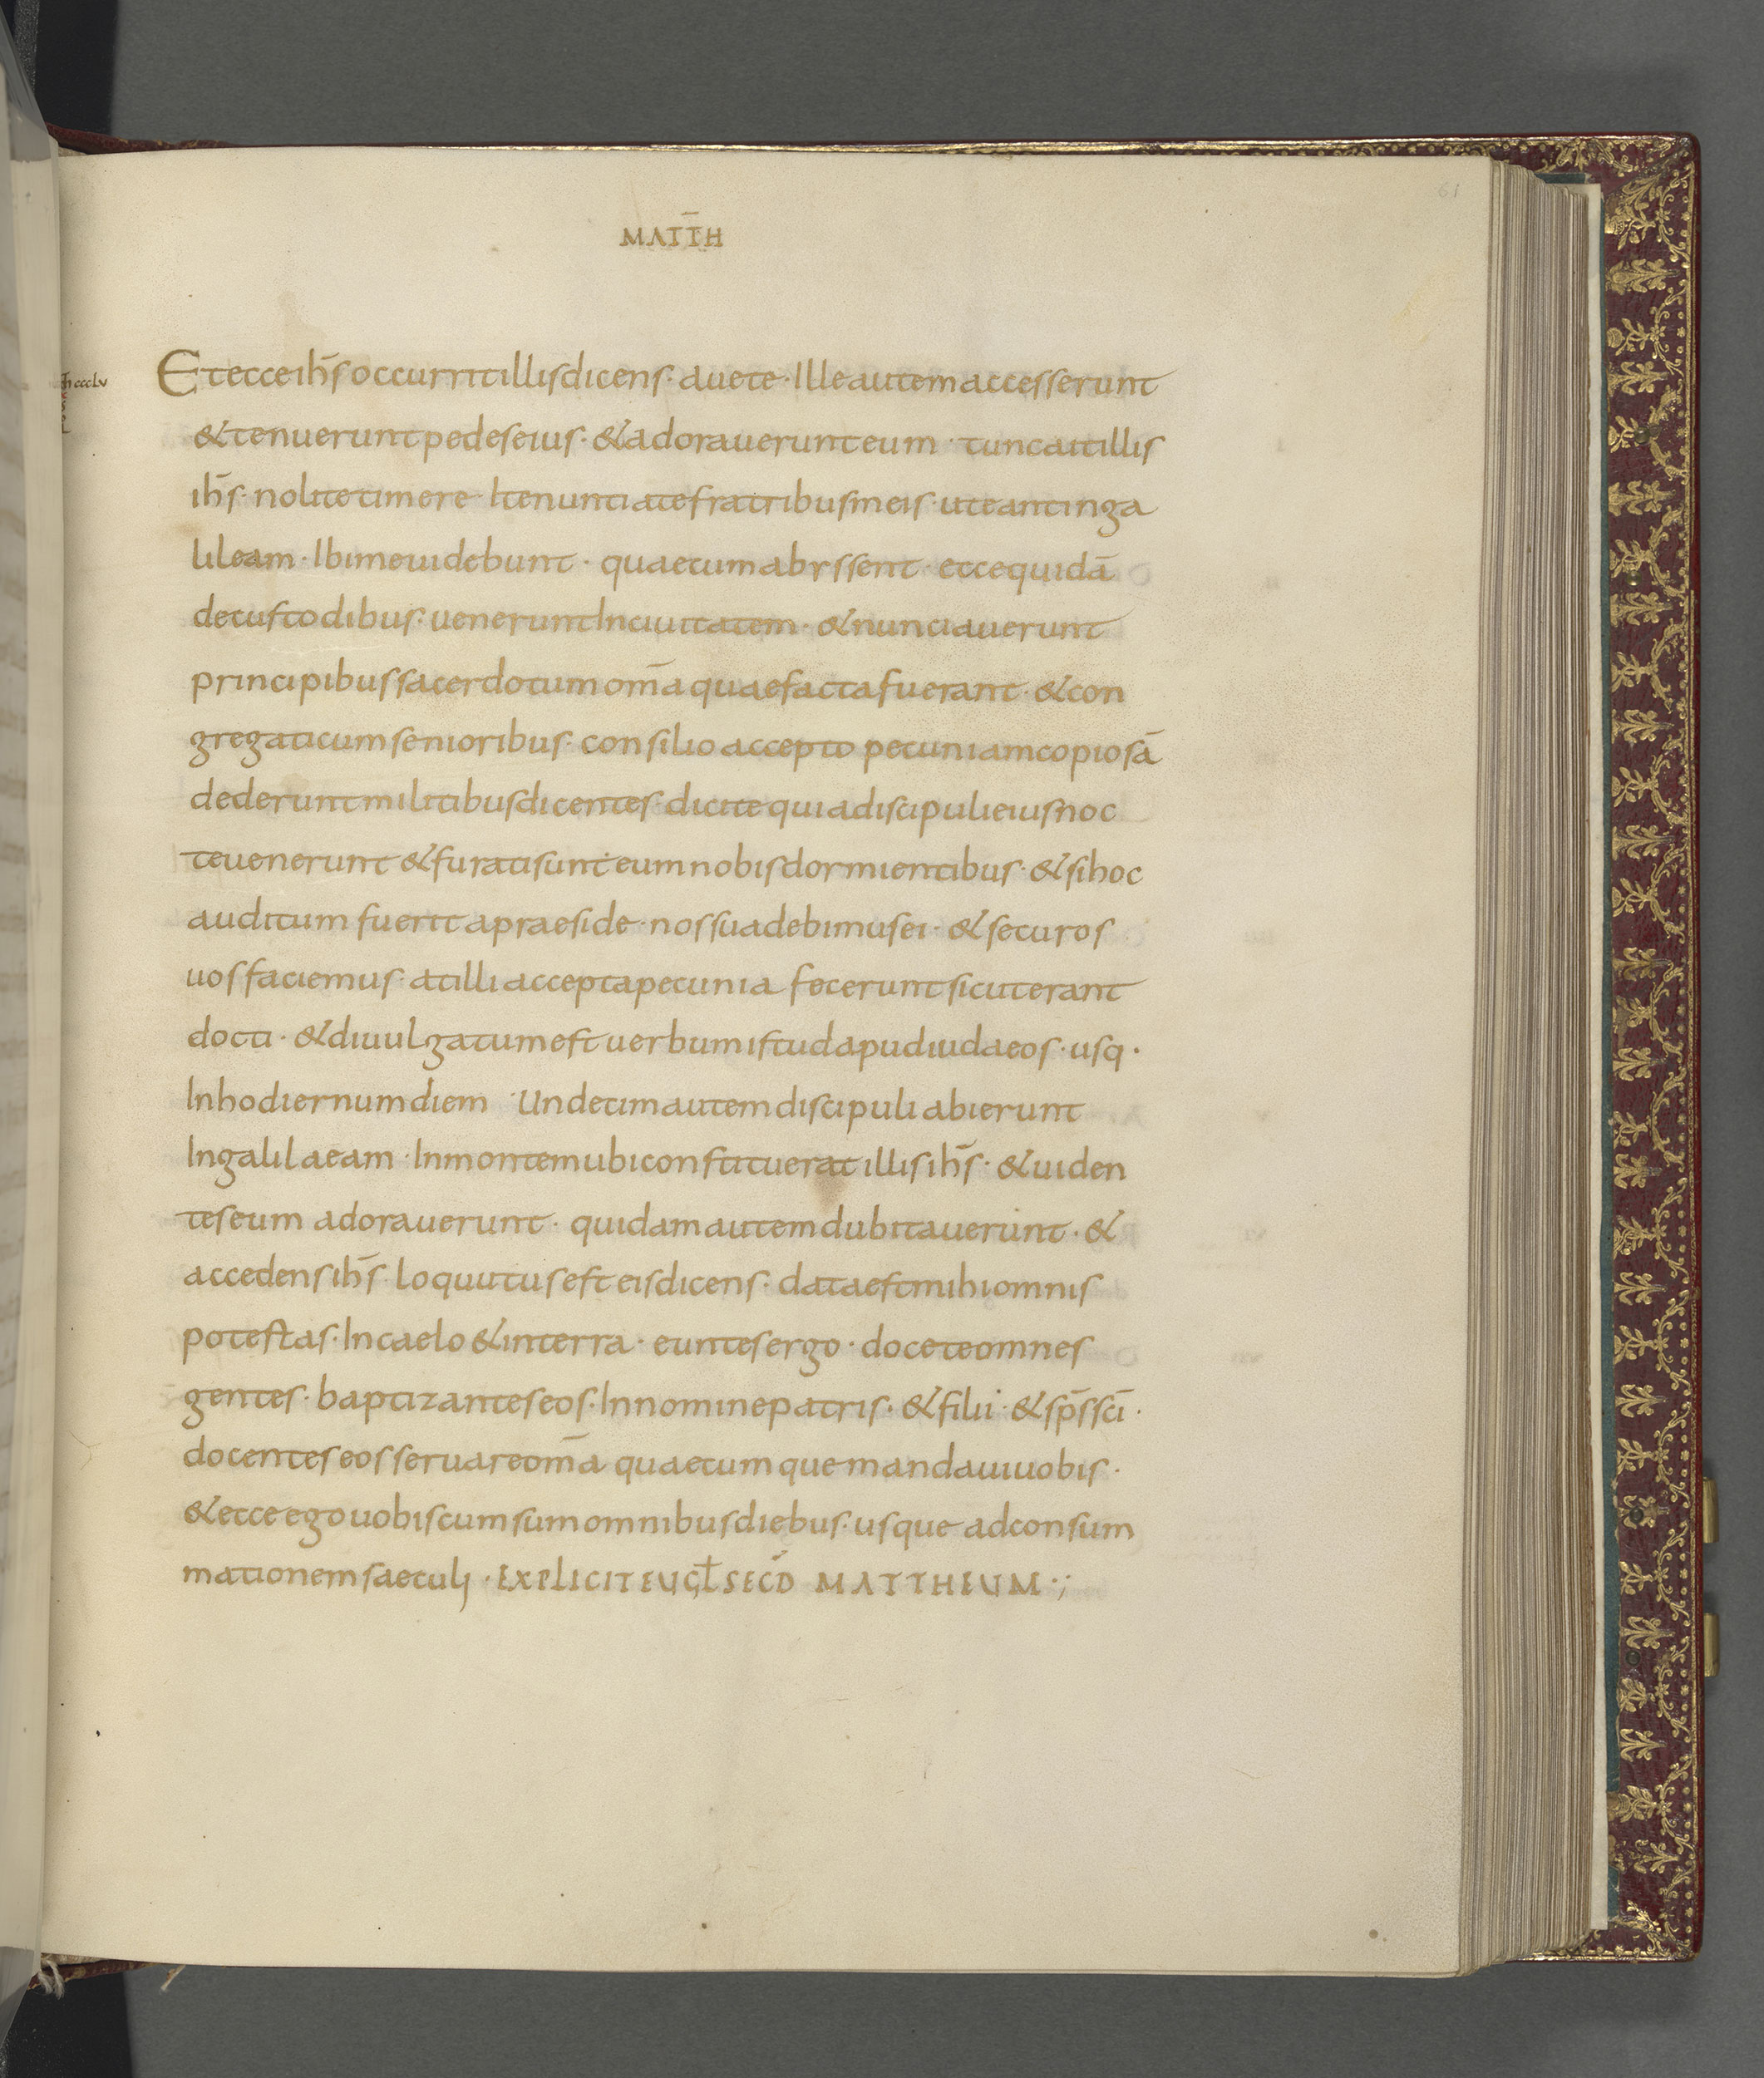 61
MATT̄H
ccclv
Et ecce ih̄s occurrit illis dicens· auete· Ille autem accesserunt
& tenuerunt pedes eius· & adorauerunt eum· tunc ait illis
ih̄s· nolite timere· Ite nuntiate fratribus meis· ut eant in ga
lileam· Ibi me uidebunt· quae cum abrssent· ecce quidā
de custodibus· uenerunt In ciuitatem· & nunciauerunt
principibus sacerdotum om̄a quae facta fuerant· & con
gregati cum senioribus· consilio accepto pecuniam copiosā
dederunt militibus dicentes· dicite quia discipuli eius noc
te uenerunt & furati sunt eum nobis dormientibus· & si hoc
auditum fuerit a praeside· nos suadebimus ei· & securos
uos faciemus· at illi accepta pecunia fecerunt sicut erant
docti· & diuulgatum est uerbum istud apud iudaeos· usq·
In hodiernum diem· Undecim autem discipuli abierunt
In galilaeam· In montem ubi constituerat illis ih̄s· & uiden
tes eum adorauerunt· quidam autem dubitauerunt· &
accedens ih̄s· loquutus est eis dicens· data est mihi omnis
potestas· In caelo & in terra· euntes ergo· docete omnes
gentes· baptizantes eos· In nomine patris· & filii· & sp̄s sc̄i·
docentes eos seruare om̄a quaecumque mandaui uobis·
& ecce ego uobiscum sum omnibus diebus· usque ad consum
mationem saeculi· EXPLICIT EUGL̄ SECD̄ MATTHEUM·;